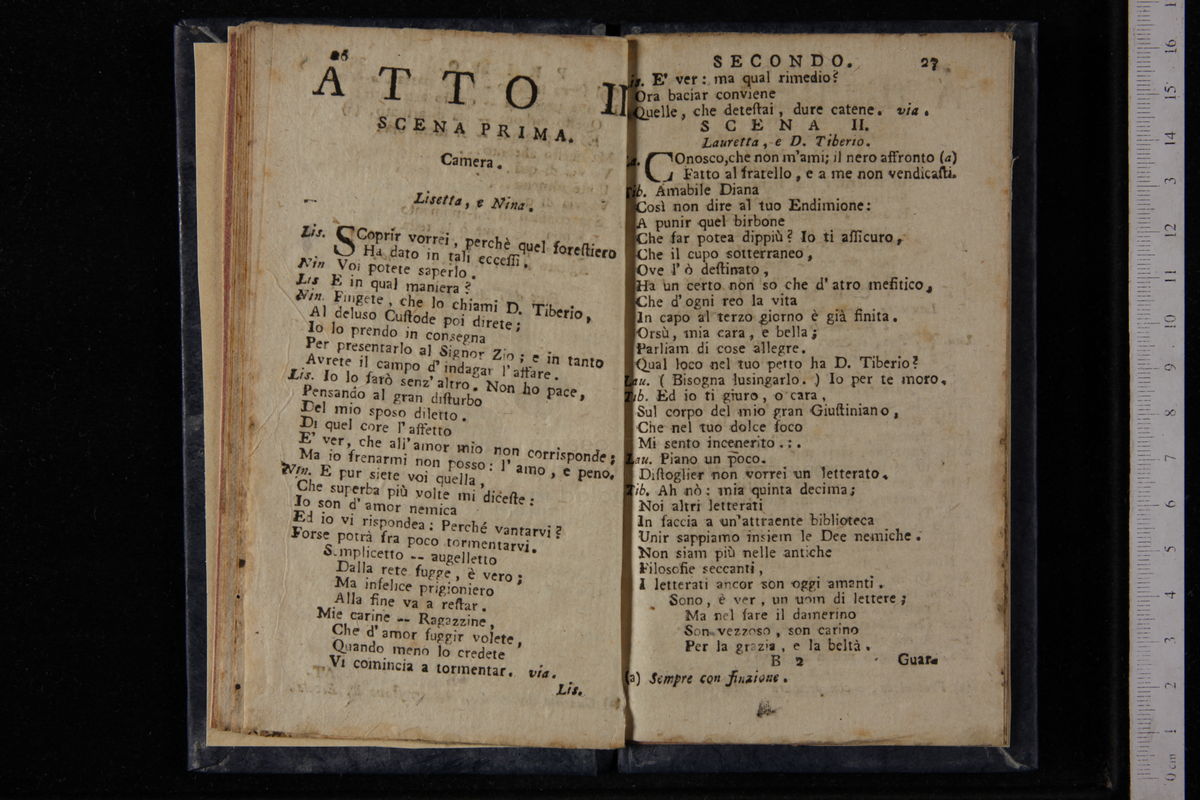 26
ATTO II
SCENA PRIMA.
Camera.
Lisetta, e Nina.
Lis. SCoprir vorrei, perchè quel forestiero
Ha dato in tali eccessi.
Nin Voi potete saperlo.
Lis E in qual maniera?
Nin. Fingete, che lo chiami D. Tiberio,
Al deluso Custode poi direte;
Io lo prendo in consegna
Per presentarlo al Signor Zio; e in tanto
Avrete il campo d'indagar l'affare.
Lis. Io lo farò senz'altro. Non ho pace,
Pensando al gran disturbo
Del mio sposo diletto.
Di quel core l'affetto
E' ver, che all'amor mio non corrisponde;
Ma io frenarmi non posso: l'amo, e peno.
Nin. E pur siete voi quella,
Che superba più volte mi diceste:
Io son d'amor nemica
Ed io vi rispondea: Perché vantarvi?
Forse potrà fra poco tormentarvi.
Semplicetto -- augelletto
Dalla rete fugge, è vero;
Ma infelice prigioniero
Alla fine va a restar.
Mie carine -- Ragazzine,
Che d'amor fuggir volete,
Quando meno lo credete
Vi comincia a tormentar. via.
Lis.
SECONDO. 27
Lis. E' ver: ma qual rimedio?
Ora baciar conviene
Quelle, che detestai, dure catene. via.
SCENA II.
Lauretta, e D. Tiberio.
COnosco, che non m'ami; il nero affronto (a)
Fatto al fratello, e a me non vendicasti.
Tib. Amabile Diana
Così non dire al tuo Endimione:
A punir quel birbone
Che far potea dippiù? Io ti assicuro,
Che il cupo sotterraneo,
Ove l'ò destinato,
Ha un certo non so che d'atro mefitico,
Che d'ogni reo la vita
In capo al terzo giorno è già finita.
Orsù, mia cara, e bella;
Parliam di cose allegre.
Qual loco nel tuo petto ha D. Tiberio?
Lau. ( Bisogna lusingarlo. ) Io per te moro.
Tib. Ed io ti giuro, o cara,
Sul corpo del mio gran Giustiniano,
Che nel tuo dolce foco
Mi sento incenerito . : .
Lau. Piano un poco.
Distoglier non vorrei un letterato.
Tib. Ah nò: mia quinta decima;
Noi altri letterati
In faccia a un'attraente biblioteca
Unir sappiamo insiem le Dee nemiche.
Non siam più nelle antiche
Filosofie seccanti,
I letterati ancor son oggi amanti.
Sono, è ver, un uom di lettere;
Ma nel fare il damerino
Son vezzoso, son carino
Per la grazia, e la beltà.
B 2 Guar-
(a) Sempre con finzione.